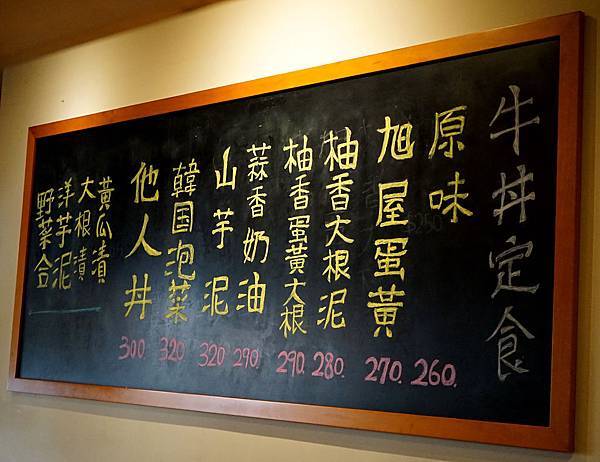 牛丼定食
原味
260.
旭屋蛋黃
270.
柚香大根泥
280.
柚香蛋黃大根
290.
蒜香奶油
290
山芋泥
320
韓国泡菜
320
他人丼
300
黃瓜漬
大根漬
洋芋泥
野菜合